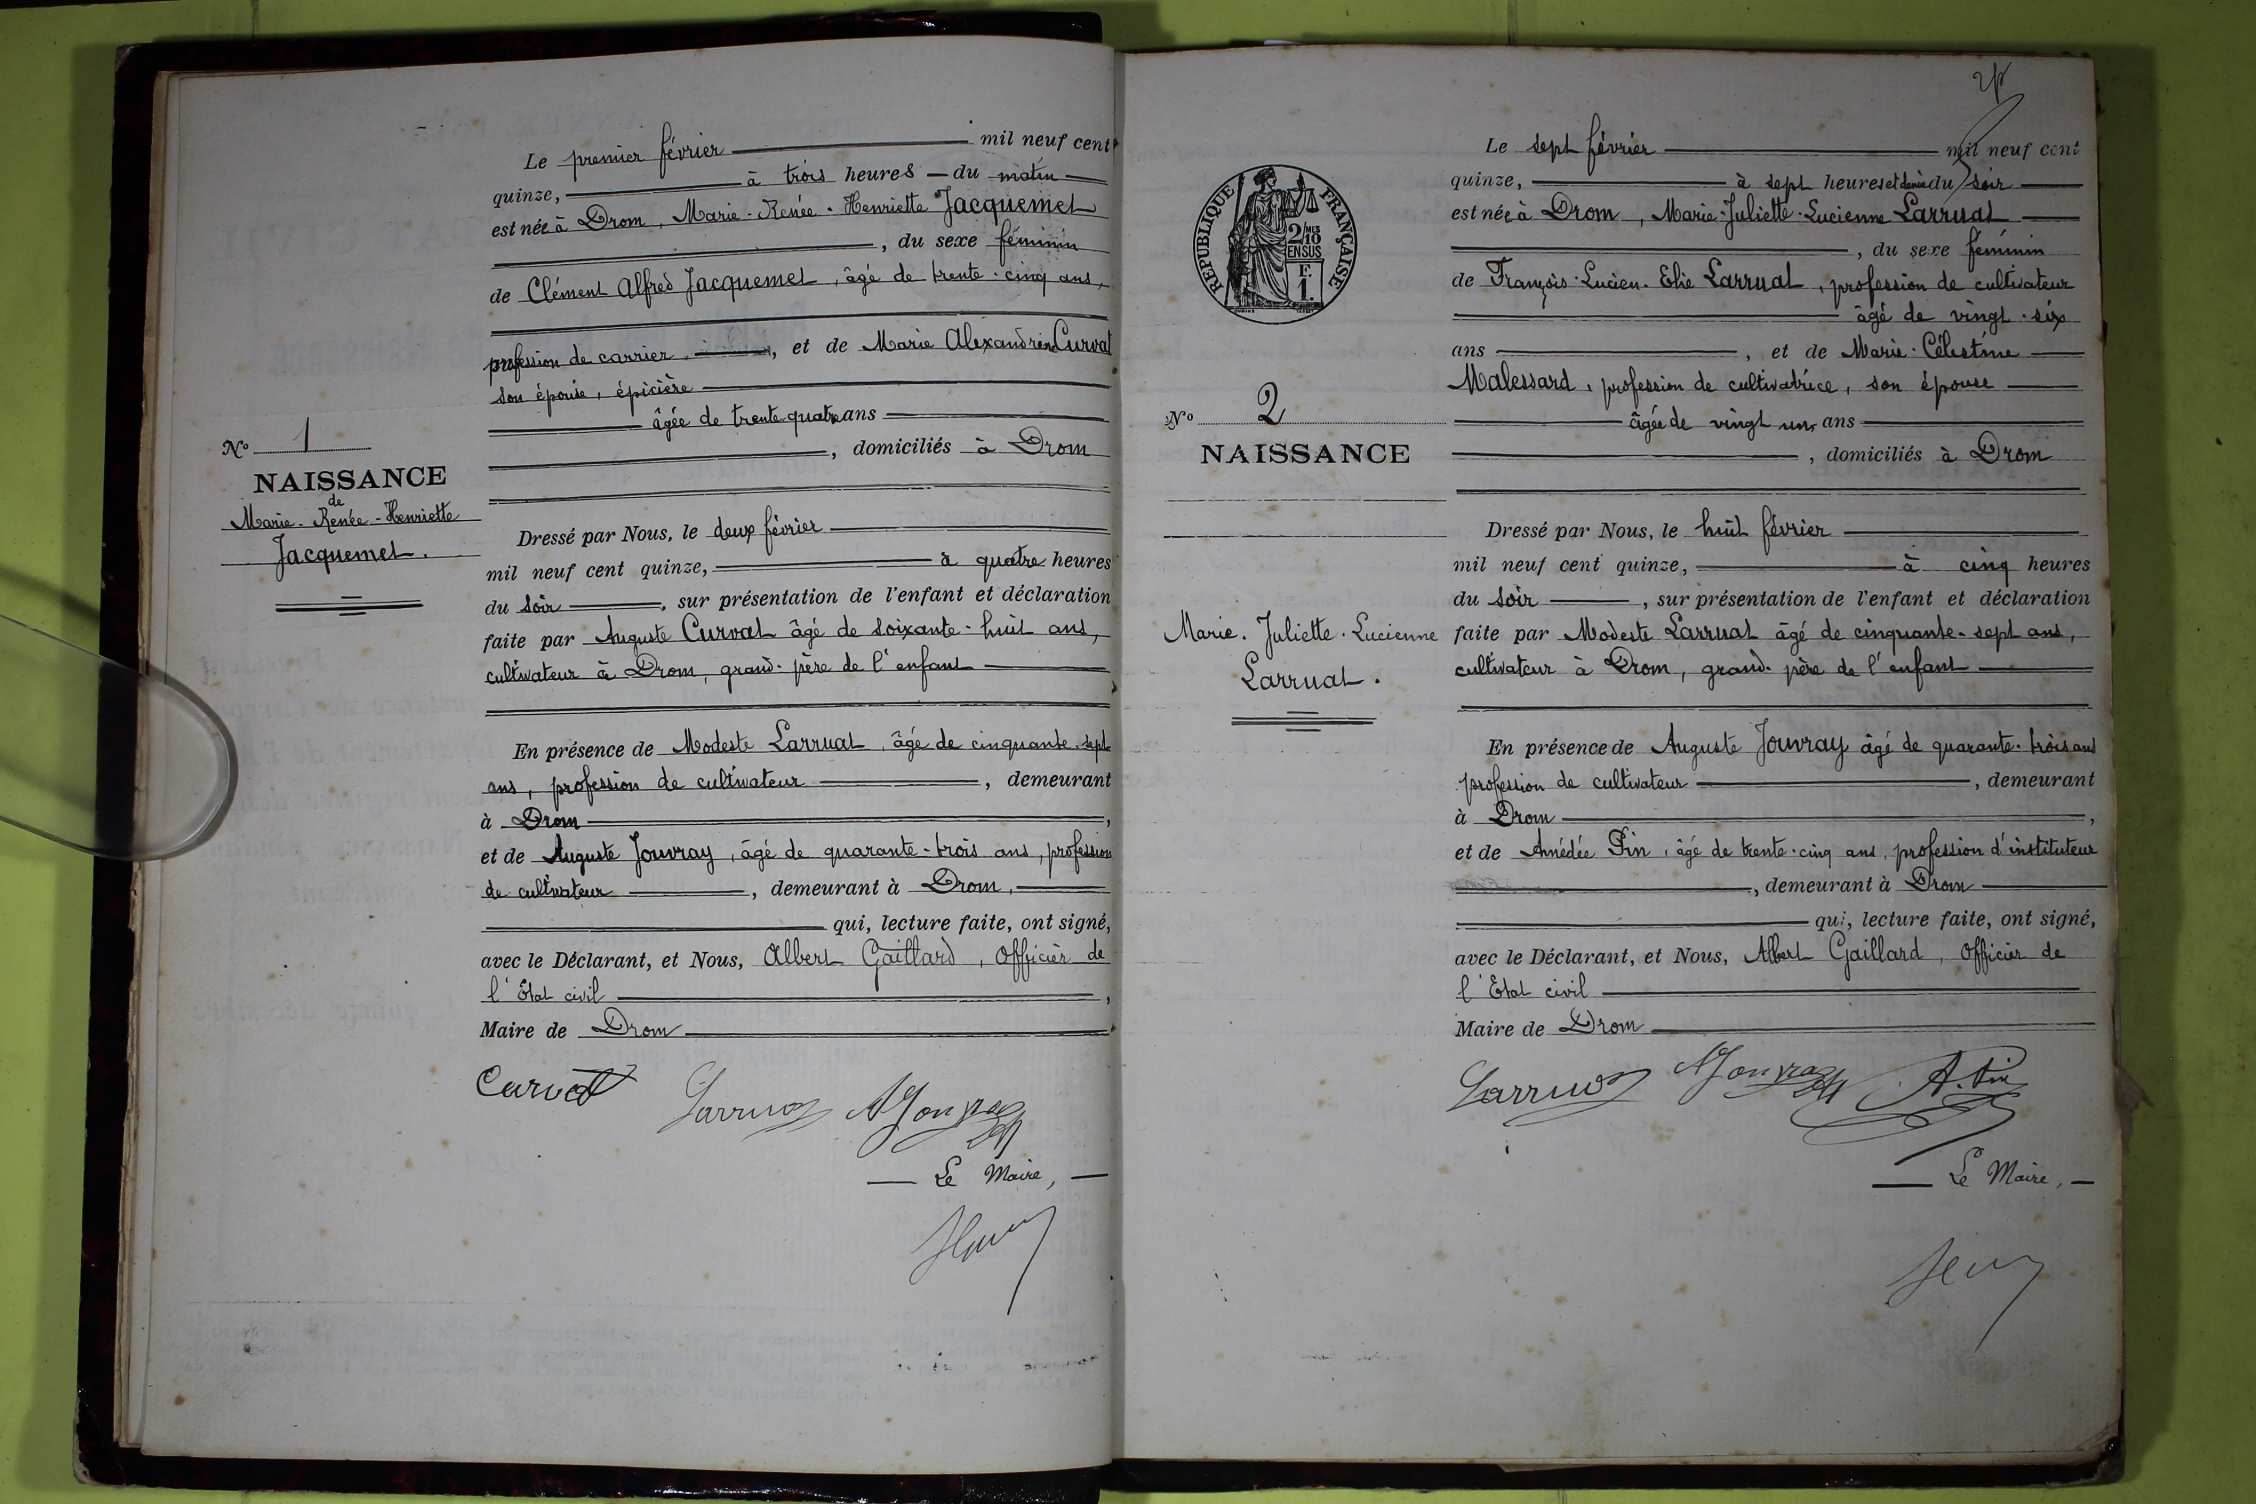 Le premier février mil neuf cent
quinze, à trois heures du matin
est née à Drom, Marie-Renée-Henriette Jacquemet
, du sexe féminin
de Clément Alfred Jacquemet, âgé de trente-cinq ans,
profession de carrier, et de Marie Alexandrine Curvat
son épouse, épicière
âgée de trente quatre ans
, domiciliés à Drom
No 1
NAISSANCE
de
Marie-Renée-Henriette
Jacquemet.
Dressé par Nous, le deux février
mil neuf cent quinze, à quatre heures
du soir, sur présentation de l'enfant et déclaration
faite par Auguste Curvat âgé de soixante-huit ans,
cultivateur à Drom, grand-père de l'enfant
En présence de Modeste Larruat, âgé de cinquante-sept
ans, profession de cultivateur, demeurant
à Drom,
et de Auguste Jouvray, âgé de quarante-trois ans, profession
de cultivateur, demeurant à Drom,
qui, lecture faite, ont signé,
avec le Déclarant, et Nous, Albert Gaillard, officier de
l'Etat civil,
Maire de Drom
Curvat Larruat A Jouvray
Le Maire,
Le sept février mil neuf cent
quinze, à sept heures et demie du soir
est née à Drom, Marie-Juliette-Lucienne Larruat
, du sexe féminin
de François-Lucien-Elie Larruat, profession de cultivateur
âgé de vingt-six
ans, et de Marie-Célestine
Malessard, profession de cultivatrice, son épouse
âgée de vingt un ans
, domiciliés à Drom
REPUBLIQUE FRANÇAISE
2/10 MES
EN SUS
F.
1.
No 2
NAISSANCE
Marie-Juliette-Lucienne
Larruat.
Dressé par Nous, le huit février
mil neuf cent quinze, à cinq heures
du soir, sur présentation de l'enfant et déclaration
faite par Modeste Larruat âgé de cinquante-sept ans,
cultivateur à Drom, grand-père de l'enfant
En présence de Auguste Jouvray âgé de quarante-trois ans
profession de cultivateur, demeurant
à Drom,
et de Amédée Pin, âgé de trente-cinq ans, profession d'instituteur
, demeurant à Drom
qui, lecture faite, ont signé,
avec le Déclarant, et Nous, Albert Gaillard, officier de
l'Etat civil
Maire de Drom
Larruat A Jouvray A. Pin
Le Maire,